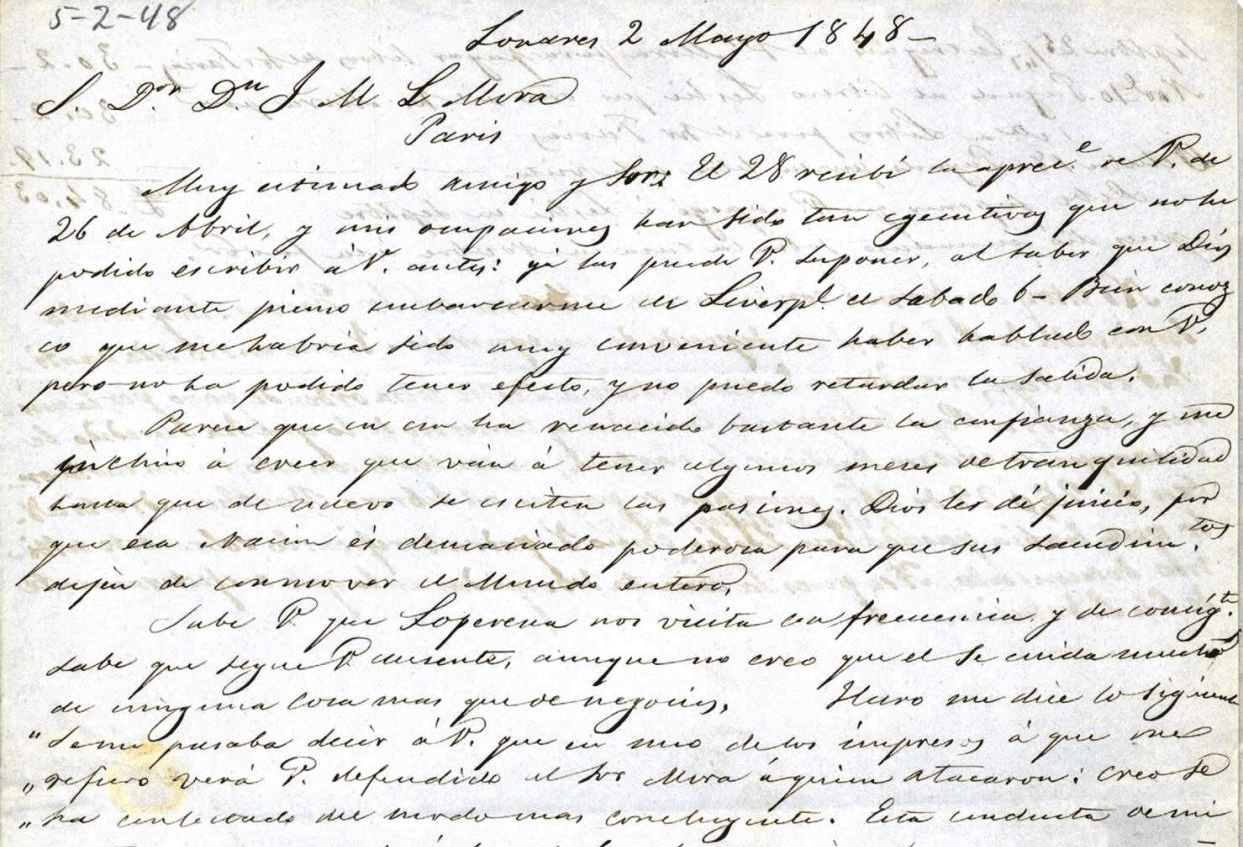 5-2-48
Londres 2 Mayo 1848-
S. Dor. Dn J M L Mora
Paris
Muy estimado amigo y Sor: El 28 recibí la aprec.e de V. de
26 de Abril, y mis ocupaciones han sido tan egecutivas que no he
podido escribir á V. antes: ya las puede V. suponer, al saber que Diós
mediante pienso embarcarme en Liverpl. el sabado 6- Bien conoz
co que me habría sido muy conveniente haber hablado con V.
pero no ha podido tener efecto, y no puedo retardar la salida.
Parece que en esa ha renacido bastante la confianza, y me
inclino á creer que ván á tener algunos meses de tranquilidad
hasta que de nuevo se esciten las pasiones. Dios les dé juicio, por
que esa Nacion és demaciado poderosa para que sus sacudim.tos
dejen de conmover el Mundo entero.
Sabe V. que Loperena nos visita con frecuencia y de consig.te
sabe que sigue V ausente, aunque no creo que el se cuida mucho
de ninguna cosa mas que de negocios. Haro me dice lo siguiente
"Se me pasaba decir á V. que en uno de los impresos á que me
"refiero verá V. defendido al Sor Mora á quien atacaron: creo se
"ha contestado del modo mas concluyente. Esta conducta de mi